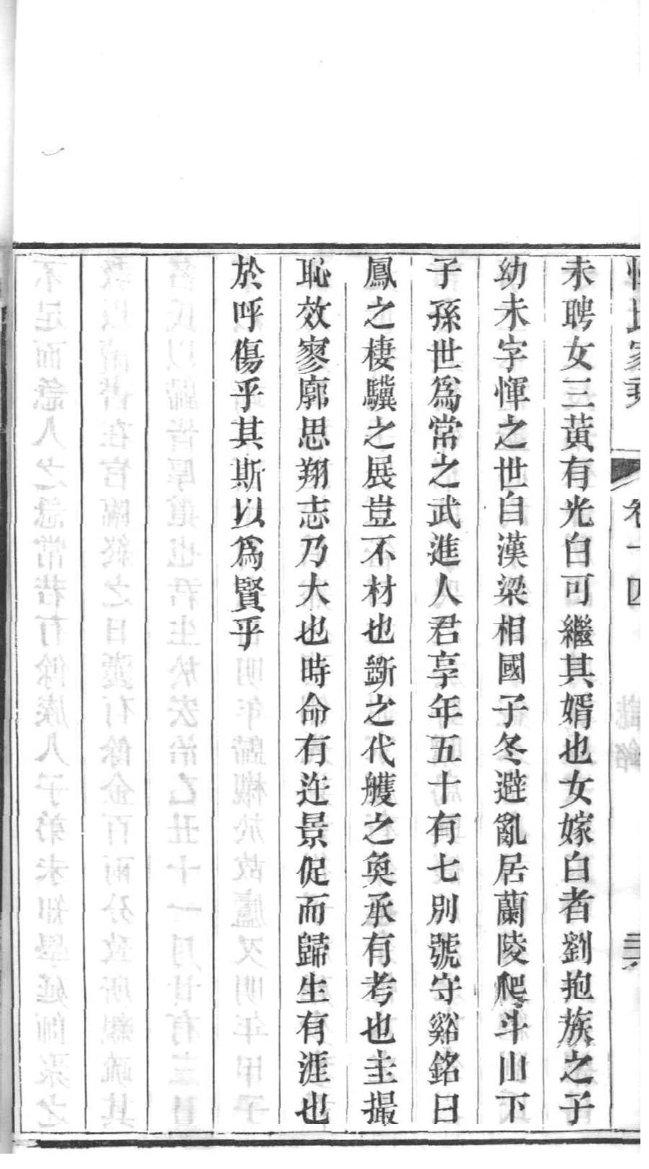 惲氏家乘 卷十四
未聘女三黃有光白可繼其婿也女嫁白者劉抱族之子
幼未字惲之世自漢梁相國子冬避亂居蘭陵爬斗山下
子孫世為常之武進人君享年五十有七別號守谿銘曰
鳳之棲驥之展豈不材也斲之代艧之奐承有考也主撮
恥效寥廓思翔志乃大也時命有迕景促而歸生有涯也
於呼傷乎其斯以為賢乎